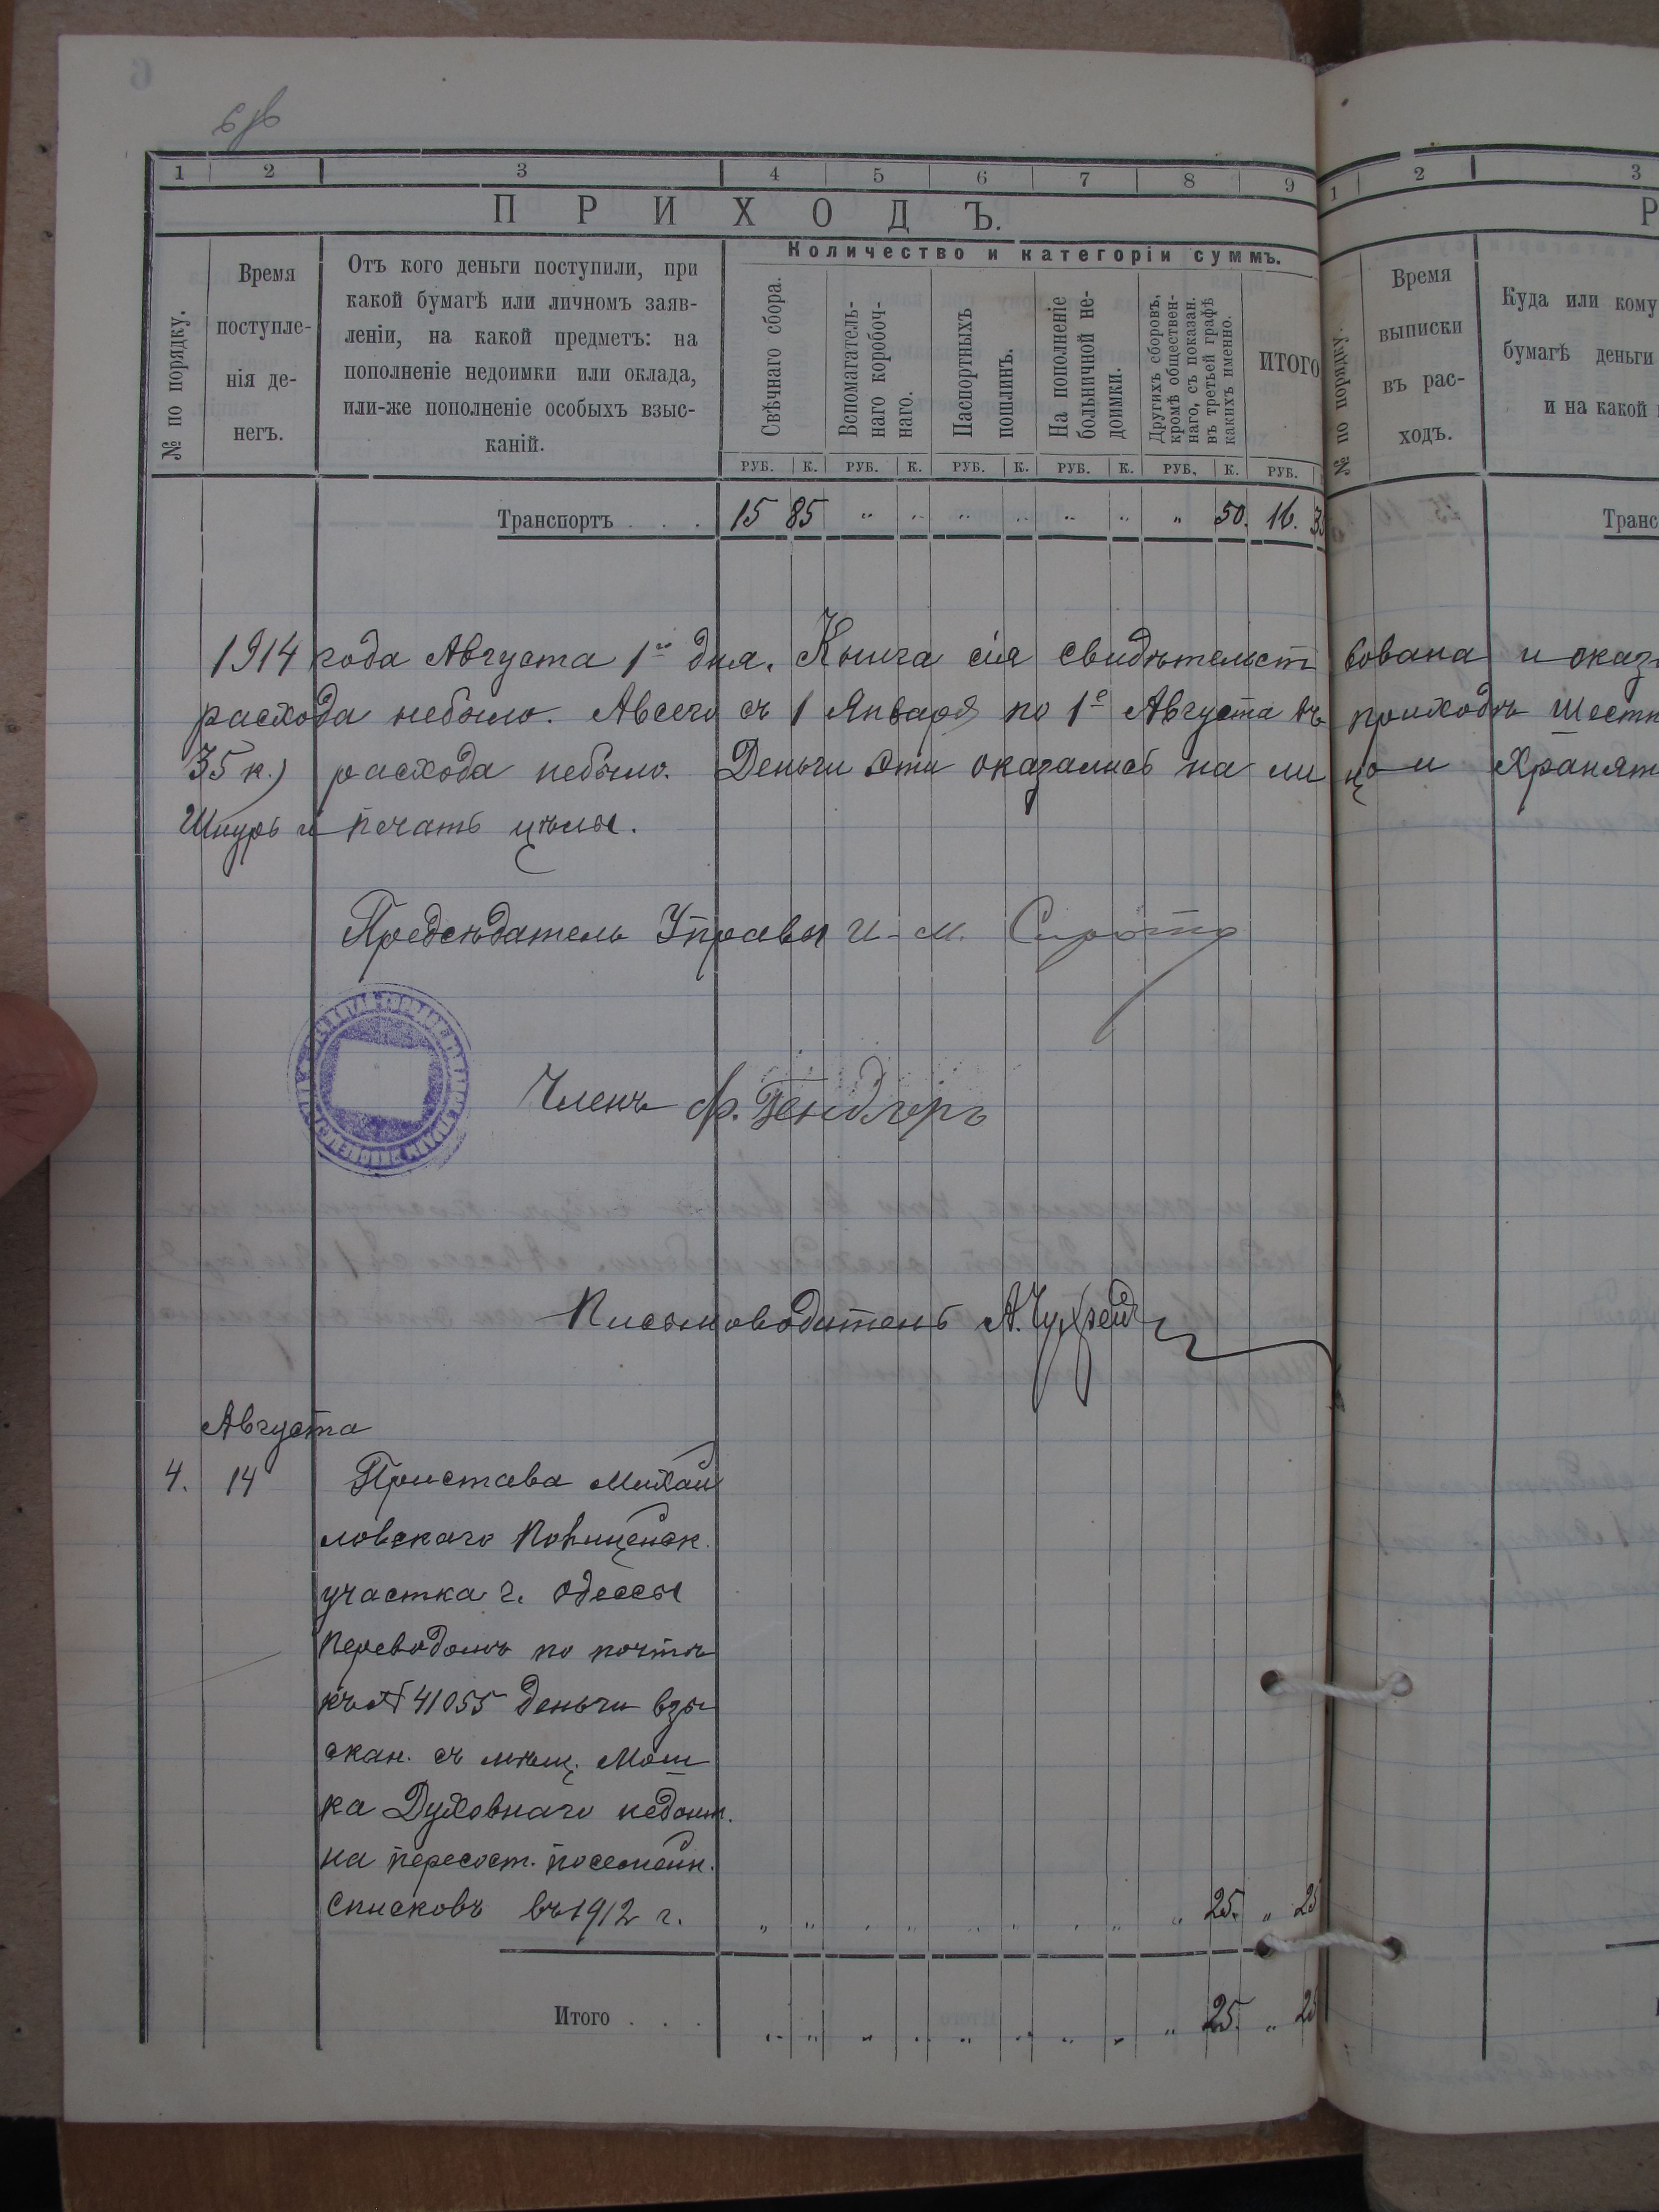 6 об
1 2 3 4 5 6 7 8 9
ПРИХОДЪ.
№ по порядку.
Время
поступле-
нія де-
негъ.
Отъ кого деньги поступили, при
какой бумагѣ или личномъ заяв-
леніи, на какой предметъ: на
пополненіе недоимки или оклада,
или-же пополненіе особыхъ взыс-
каній.
Количество и категоріи суммъ.
Свѣчнаго сбора.
Вспомагатель-
наго коробоч-
наго.
Паспортныхъ
пошлинъ.
На пополненіе
больничной не-
доимки.
Другихъ сборовъ,
кромѣ обществен-
наго, съ показан.
въ третьей графѣ
какихъ именно.
ИТОГО
РУБ. К. РУБ. К. РУБ. К. РУБ. К. РУБ. К. РУБ.
Транспортъ . . . 15 85 „ „ „ „ „ „ „ 50. 16. 35
1914 года Августа 1го дня. Книга сія свидѣтельст вована и оказ
расхода небыло. Авсего съ 1 Января по 1е Августа въ приходѣ Шестн
35 к.) расхода небыло. Деньги эти оказались на ли цо и хранят
Шнуръ и печать цѣлы.
Предсѣдатель Управы И-М. Сирота
Членъ Ф. Гендлеръ
Письмоводитель А.
Августа
4. 14 Пристава Михай
ловскаго Полицейск.
участка г. Одессы
переводомъ по почтѣ
къ № 41055 деньги взы
скан. съ мѣщ. Мош
ка Духовнаго недоим.
на пересост. посемейн.
списковъ въ 1912 г. „ „ „ „ „ „ „ „ „ 25. „ 25
Итого . . . „ „ „ „ „ „ „ „ „ 25. „ 25
1 2 3
Р
№ по порядку.
Время
выписки
въ рас-
ходъ.
Куда или кому
бумагѣ деньги
и на какой
Транс